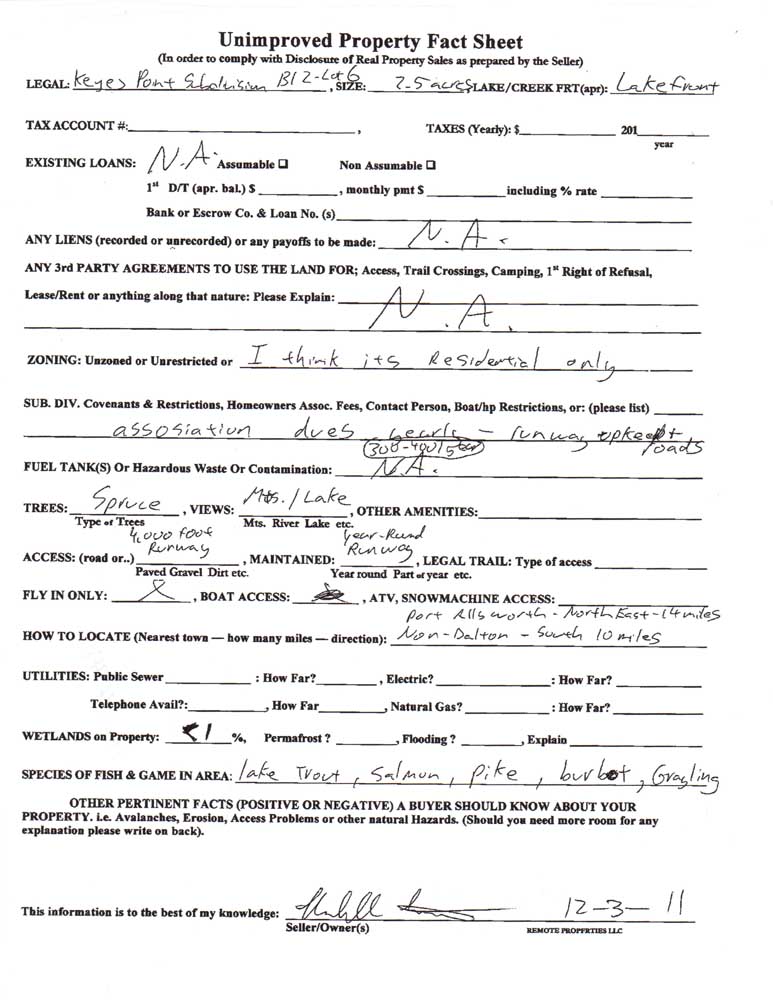 Unimproved Property Fact Sheet
(In order to comply with Disclosure of Real Property Sales as prepared by the Seller)
LEGAL: Keyes Point Subdivision Bl 2-Lot 6, SIZE: 2-5 acres LAKE/CREEK FRT(apr): Lakefront
TAX ACCOUNT #:____________, TAXES (Yearly): $____________ 201____
year
EXISTING LOANS: N.A. Assumable ❑ Non Assumable ❑
1st D/T (apr. bal.) $ ____________, monthly pmt $ ____________ including % rate ____________
Bank or Escrow Co. & Loan No. (s)____________
ANY LIENS (recorded or unrecorded) or any payoffs to be made: N.A.
ANY 3rd PARTY AGREEMENTS TO USE THE LAND FOR; Access, Trail Crossings, Camping, 1st Right of Refusal,
Lease/Rent or anything along that nature: Please Explain: N.A.
ZONING: Unzoned or Unrestricted or I think its Residential only
SUB. DIV. Covenants & Restrictions, Homeowners Assoc. Fees, Contact Person, Boat/hp Restrictions, or: (please list) ______
assosiation dues yearly - runway upkeept, roads
FUEL TANK(S) Or Hazardous Waste Or Contamination: N.A.
TREES: Spruce, VIEWS: Mts./Lake, OTHER AMENITIES:____________
Type of Trees Mts. River Lake etc.
4,000 foot Runway Year-Round Runway
ACCESS: (road or..) ____________, MAINTAINED: ____________, LEGAL TRAIL: Type of access ____________
Paved Gravel Dirt etc. Year round Part of year etc.
FLY IN ONLY: X, BOAT ACCESS: ______, ATV, SNOWMACHINE ACCESS: ____________
Port Allsworth - North East - 14 miles
HOW TO LOCATE (Nearest town — how many miles — direction): Non-Dalton - South 10 miles
UTILITIES: Public Sewer ____________ : How Far? ______, Electric? ____________: How Far? ____________
Telephone Avail?: ____________, How Far____________, Natural Gas? ____________: How Far? ____________
WETLANDS on Property: <1 %, Permafrost ? ____________, Flooding ? ____________, Explain ____________
SPECIES OF FISH & GAME IN AREA: lake Trout, Salmon, Pike, burbot, Grayling
OTHER PERTINENT FACTS (POSITIVE OR NEGATIVE) A BUYER SHOULD KNOW ABOUT YOUR
PROPERTY. i.e. Avalanches, Erosion, Access Problems or other natural Hazards. (Should you need more room for any
explanation please write on back).
This information is to the best of my knowledge: 12-3-11
Seller/Owner(s) REMOTE PROPERTIES LLC